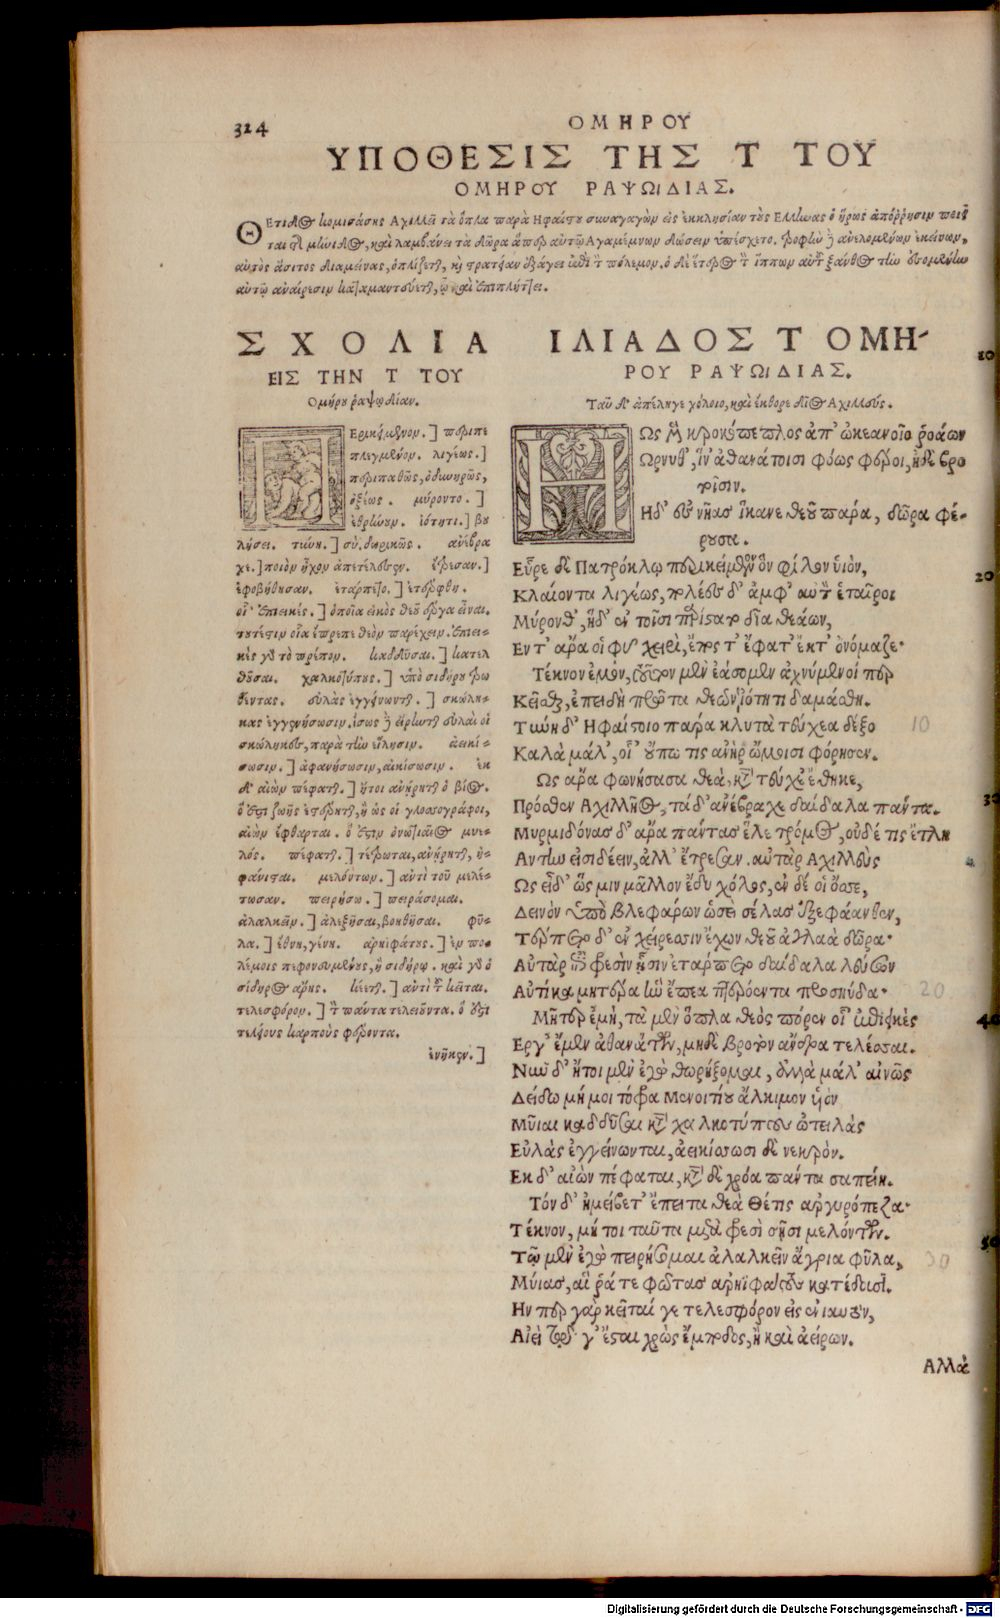 324
ΟΜΗΡΟΥ
ΥΠΟΘΕΣΙΣ ΤΗΣ Τ ΤΟΥ
ΟΜΗΡΟΥ ΡΑΨΩΙΔΙΑΣ.
ΘΕτιδος κομισάσης Αχιλλεῖ τὰ ὅπλα παρὰ Ηφαίστου συναγαγὼν εἰς ἐκκλησίαν τοὺς Ελλίωας ὁ ἥρως ἀπόῤῥησιν ποιεῖ
ται τῆς μίωιδος, καὶ λαμβάνει τὰ δῶρα ἅπερ αὐτῷ Αγαμέμνων δώσειν ὑπέσχετο. τροφίω δὲ ἀνελομένων ἐκείνων,
αὐτὸς ἄσιτος διαμείνας, ὁπλίζεται, καὶ στρατιὰν ἐξάγει ἐπὶ τὸν πόλεμον. ὁ δὲ ἕτερος τῶν ἵππων αὐτοῦ ξάνθος τίω ἐσομένίω
αὐτῷ ἀναίρεσιν καταμαντεύεται, ᾧ καὶ ἐπιπλήττει.
ΣΧΟΛΙΑ
ΕΙΣ ΤΗΝ Τ ΤΟΥ
Ομήρου ῥαψῳδίαν.
Ερικείμενον.] περιπε
πλεγμένον. λιγέως.]
περιπαθῶς, ὀδυνηρῶς,
ὀξέως. μύροντο.]
ἐθρίωουν. ἰότητι.] βου
λήσει. τιώη.] σὺ. δωρικῶς. ἀνέβρα
χε.] ποιὸν ἦχον ἀπετέλεσεν. ἔτρεσαν.]
ἐφοβήθησαν. ἐταρπετο.] ἐτέρφθη.
οἷ' ἐπιεικές.] ὁποῖα εἰκὸς θεοῦ ἔργα εἶναι.
τουτέστιν οἷα ἔπρεπε θεὸν παρέχειν. ἐπιει-
κὲς γὰρ τὸ πρέπον. καδδῦσαι.] κατελ
θοῦσαι. χαλκοτύπους.] ὑπὸ σιδήρου τρω
θέντας. εὐλὰς ἐγγείνωνται.] σκώλη-
κας ἐγγεννήσωσιν. ἴσως δὲ εἴρίωται εὐλαὶ οἱ
σκώληκες, παρὰ τίω εἴλησιν. ἀεικί-
σωσιν.] ἀφανήσωσιν, αἰκίσωσιν. ἐκ
δ' αἰὼν πέφαται.] ἤτοι ἀνῄρηται ὁ βίος.
ὅ ἐστι ζωῆς ἐστέρηται, ἢ ὡς οἱ γλωσσογράφοι,
αἰὼν ἔφθαρται. ὅ ἐστιν ὁ νωτιαῖος μυε-
λός. πέφαται.] τέτρωται, ἀνῄρηται, ἠ-
φάνισται. μελόντων.] ἀντὶ τοῦ μελέ-
τωσαν. πειρήσω.] πειράσομαι.
ἀλαλκεῖν.] ἀλεξῆσαι, βοηθῆσαι. φῦ-
λα.] ἔθνη, γένη. ἀρηϊφάτους.] ἐν πο-
λέμοις πεφονευμένους, ἢ σιδήρῳ. καὶ γὰρ ὁ
σίδηρος ἄρης. κέεται.] ἀντὶ τοῦ κεῖται.
τελεσφόρον.] τὸν πάντα τελειοῦντα. ὅ ἐστι
τελείους καρποὺς φέροντα.
ἐνῆκεν.]
ΙΛΙΑΔΟΣ Τ ΟΜΗ-
ΡΟΥ ΡΑΨΩΙΔΙΑΣ.
Ταῦ δ' ἀπέληγε χόλοιο, καὶ ἔκθορε δῖος Αχιλλεύς.
ΗΩς μὲν κροκόπεπλος ἀπ' ὠκεανοῖο ῥοάων
Ωρνυθ', ἵν' ἀθανάτοισι φόως φέροι, ἠδὲ βρο
τοῖσιν.
Ηδ' ἐς νῆας ἵκανε θεοῦ πάρα, δῶρα φέ-
ρουσα.
Εὗρε δὲ Πατρόκλῳ περικείμενον ὃν φίλον υἱόν,
Κλαίοντα λιγέως, πολέες δ' ἀμφ' αὐτὸν ἑταῖροι
Μύρονθ', ἡδ' ἐν τοῖσι παρίστατο δῖα θεάων,
Εν τ' ἄρα οἱ φῦ χειρὶ, ἔπος τ' ἔφατ' ἔκ τ' ὀνόμαζε·
Τέκνον ἐμὸν, τοῦτον μὲν ἐάσομεν ἀχνύμενοί περ
Κεῖσθαι, ἐπειδὴ πρῶτα θεῶν ἰότητι δαμάσθη.
Τιώη δ' Ηφαίστοιο πάρα κλυτὰ τεύχεα δέξο 10
Καλὰ μάλ', οἷ' οὔπω τις ἀνὴρ ὤμοισι φόρησεν.
Ως ἄρα φωνήσασα θεὰ, κατὰ τεύχε' ἔθηκε,
Πρόσθεν Αχιλλῆος, τὰ δ' ἀνέβραχε δαίδαλα πάντα.
Μυρμιδόνας δ' ἄρα πάντας ἕλε τρόμος, οὐδέ τις ἔτλη
Αντίω εἰσιδέειν, ἀλλ' ἔτρεσαν. αὐτὰρ Αχιλλεὺς
Ως εἶδ' ὥς μιν μᾶλλον ἔδυ χόλος, ἐν δέ οἱ ὄσσε,
Δεινὸν ὑπὸ βλεφάρων ὡσεὶ σέλας ἐξεφάανθεν,
Τέρπετο δ' ἐν χείρεσσιν ἔχων θεοῦ ἀγλαὰ δῶρα·
Αὐτὰρ ἐπεὶ φρεσὶν ᾗσιν ἐτάρπετο δαίδαλα λεύσσων
Αὐτίκα μητέρα ἣν ἔπεα πτερόεντα προσηύδα· 20
Μῆτερ ἐμὴ, τὰ μὲν ὅπλα θεὸς πόρεν οἷ' ἐπιεικὲς
Εργ' ἔμεν ἀθανάτων, μηδὲ βροτὸν ἄνδρα τελέσσαι.
Νῦν δ' ἤτοι μὲν ἐγὼ θωρήξομαι, ἀλλὰ μάλ' αἰνῶς
Δείδω μή μοι τόφρα Μενοιτίου ἄλκιμον υἱὸν
Μῦιαι καδδῦσαι κατὰ χαλκοτύπους ὠτειλὰς
Εὐλὰς ἐγγείνωνται, ἀεικίσσωσι δὲ νεκρὸν.
Εκ δ' αἰὼν πέφαται, κατὰ δὲ χρόα πάντα σαπείη.
Τόν δ' ἠμείβετ' ἔπειτα θεὰ Θέτις ἀργυρόπεζα·
Τέκνον, μή τοι ταῦτα μετὰ φρεσὶ σῇσι μελόντων.
Τῷ μὲν ἐγὼ πειρήσομαι ἀλαλκεῖν ἄγρια φῦλα, 30
Μύιας, αἵ ῥά τε φῶτας ἀρηϊφάτους κατέδουσιν.
Ην περ γὰρ κεῖταί γε τελεσφόρον εἰς ἐνιαυτὸν,
Αἰεὶ τῷδ' γ' ἔσται χρὼς ἔμπεδος, ἢ καὶ ἀρείων.
Αλλὰ
10
20
30
40
50
Digitalisierung gefördert durch die Deutsche Forschungsgemeinschaft - DFG